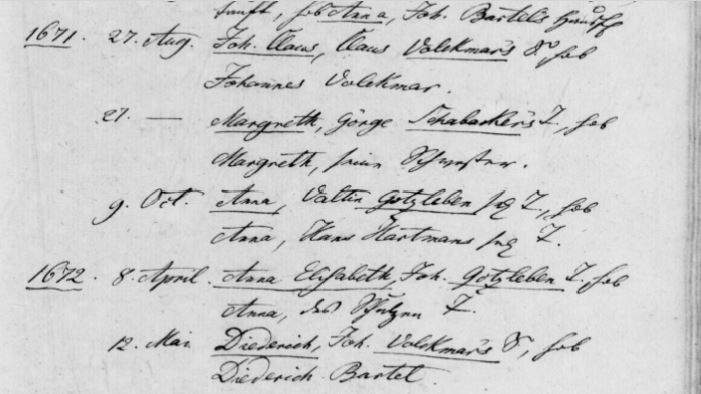 sanft, hob Anna, Joh. Bartels
1671. 27. Aug. Joh. Claus, Claus Volckmar's S. hob
Johannes Volckmar.
27. — Margreth, Görge Schabacker's T., hob
Margreth, seine Schwester.
9. Oct. Anna, Valtin Gotzleben sel. T., hob
Anna, Hans Hartmans sel. T.
1672. 8. April. Anna Elisabeth, Joh. Gotzleben T. hob
Anna, des Schulzen T.
12. Mai. Diederich, Joh. Volckmar's S, hob
Diederich Bartel.